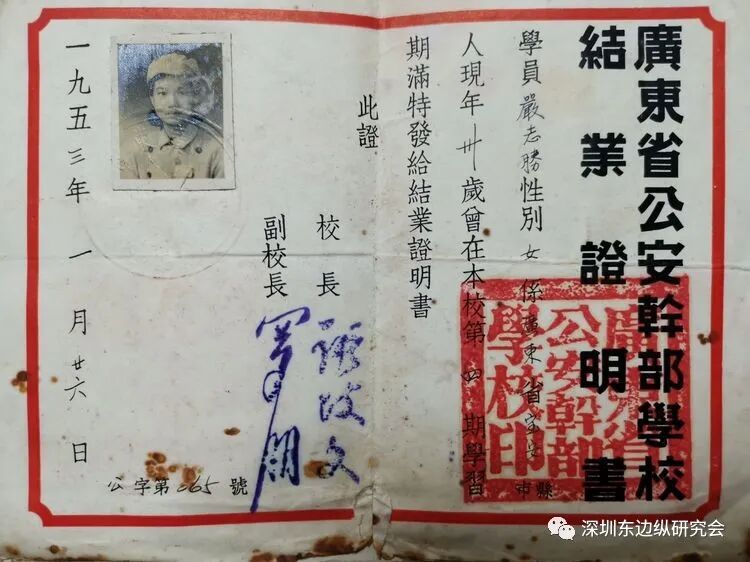 廣東省公安幹部學校
結業證明書
學員嚴志勝性別女係廣東省寶安縣市
人現年卅歲曾在本校第四期學習
期滿特發給結業證明書
此證
校長
副校長
公字第065號
一九五三年一月廿六日
廣東省
公安幹部
學校印
深圳东边纵研究会